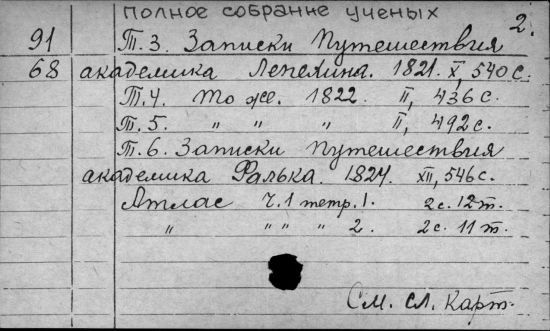 полное собрание ученых
2.
91 Т. 3. Записки Путешествия
68 академика Лепехина. 1821. X, 540 с.
Т. 4. То же. 1822. II, 436 с.
Т. 5. " " " II, 492 с.
Т. 6. Записки Путешествия
академика Фалька. 1824. XII, 546 с.
Атлас Ч. 1 тетр. 1. 2 с. 12 т.
" " " " 2. 2 с. 11 т.
См. сл. карт.